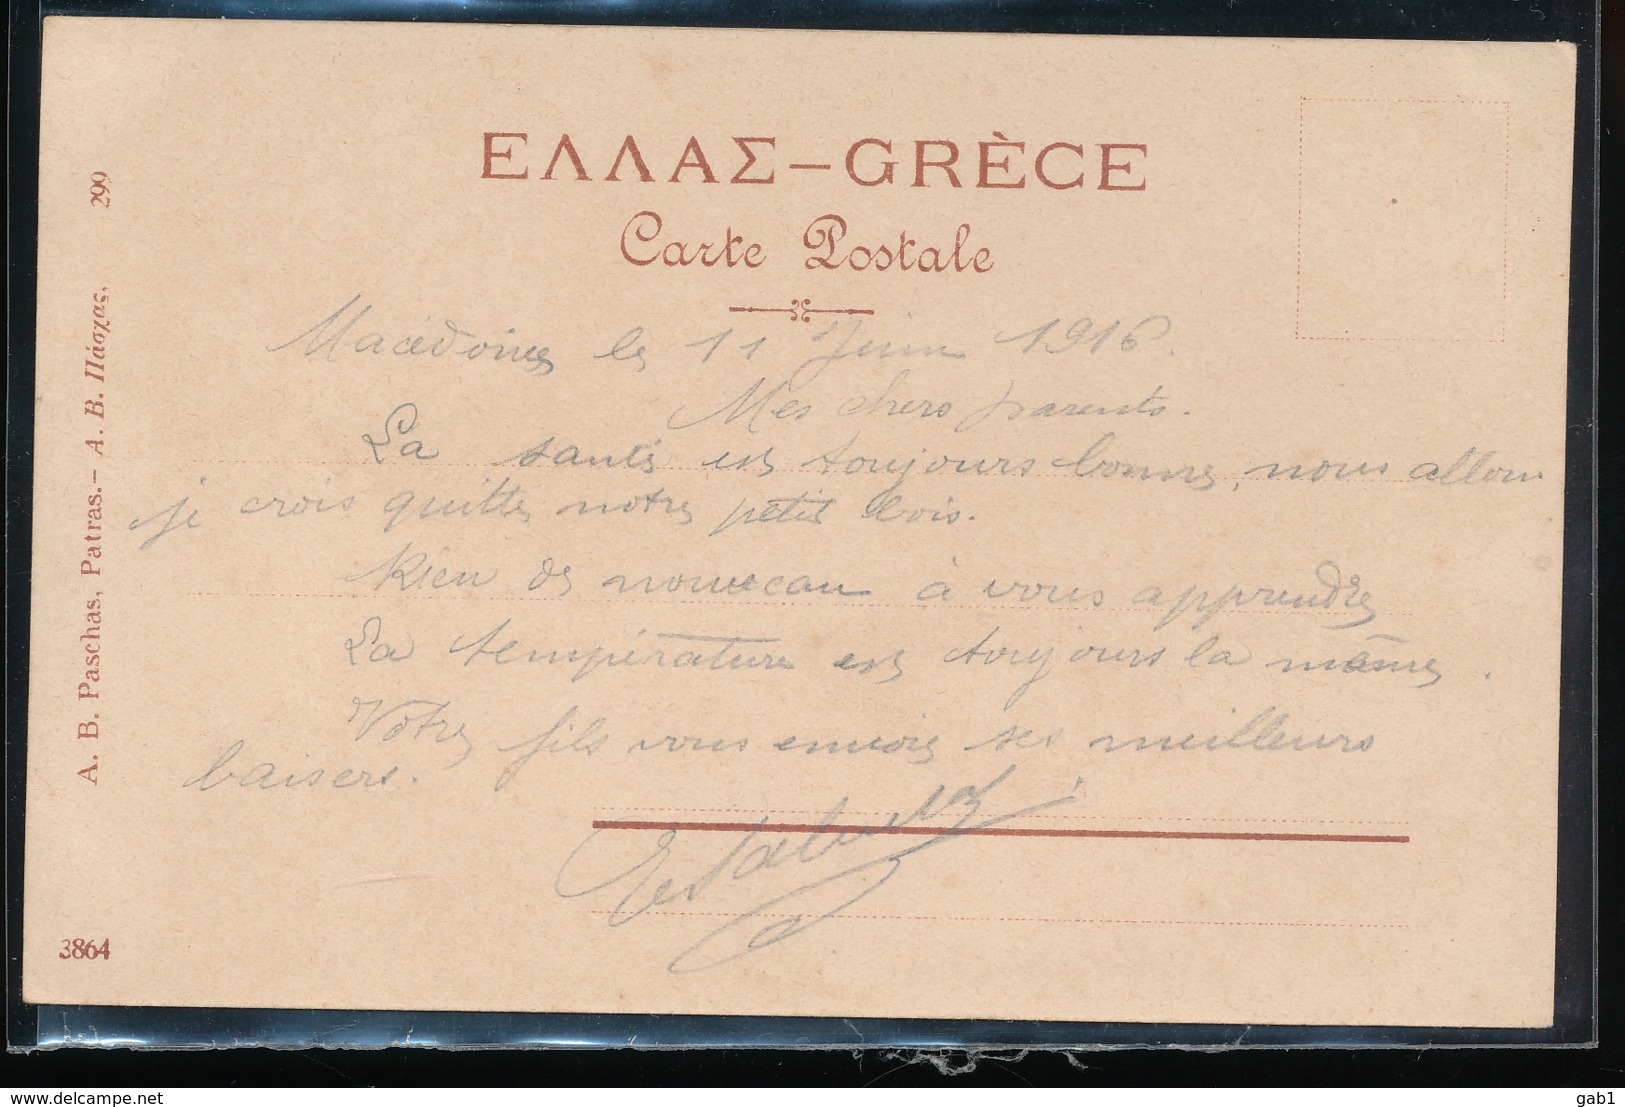 ΕΛΛΑΣ – GRÈCE
Carte Postale
Macédoine le 11 Juin 1916.
Mes chers parents.
La santé est toujours bonne, nous allons
je crois quitte notre petit bois.
Rien de nouveau à vous apprendre
La température est toujours la même.
Votre fils vous envoie ses meilleurs
baisers.
A. B. Paschas, Patras. – Α. Β. Πάσχας, 299
3864
delcampe.net
gab1